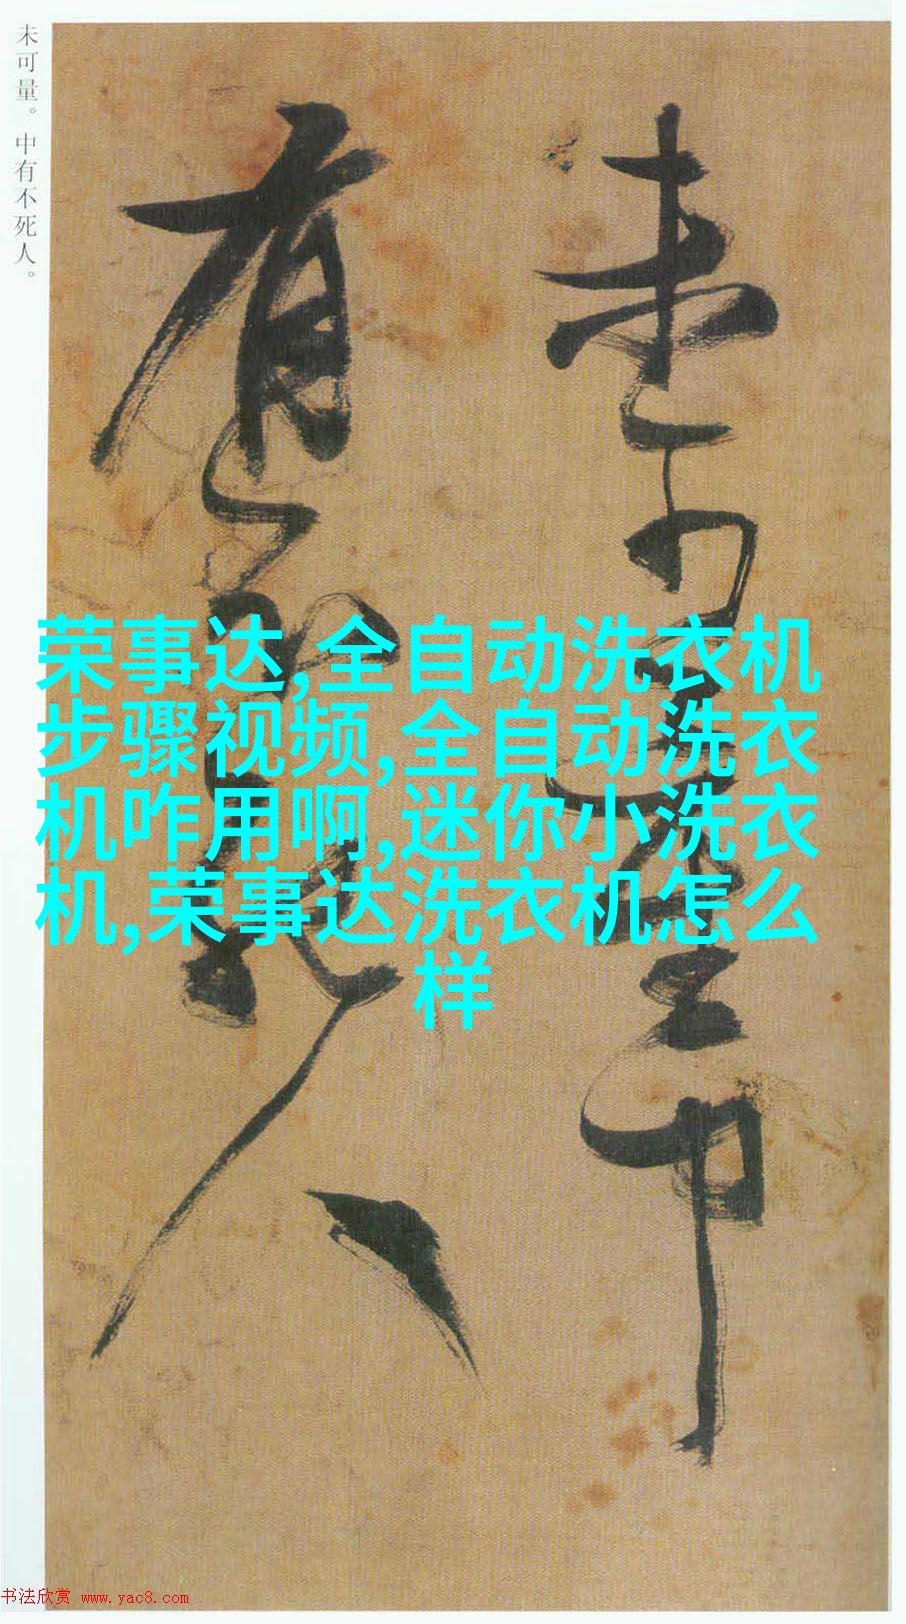 未可量。中有不死人。
未可量中
有不死人
荣事达,全自动洗衣机
步骤视频,全自动洗衣
机咋用啊,迷你小洗衣
机,荣事达洗衣机怎么
样
书法欣赏 www.yac8.com